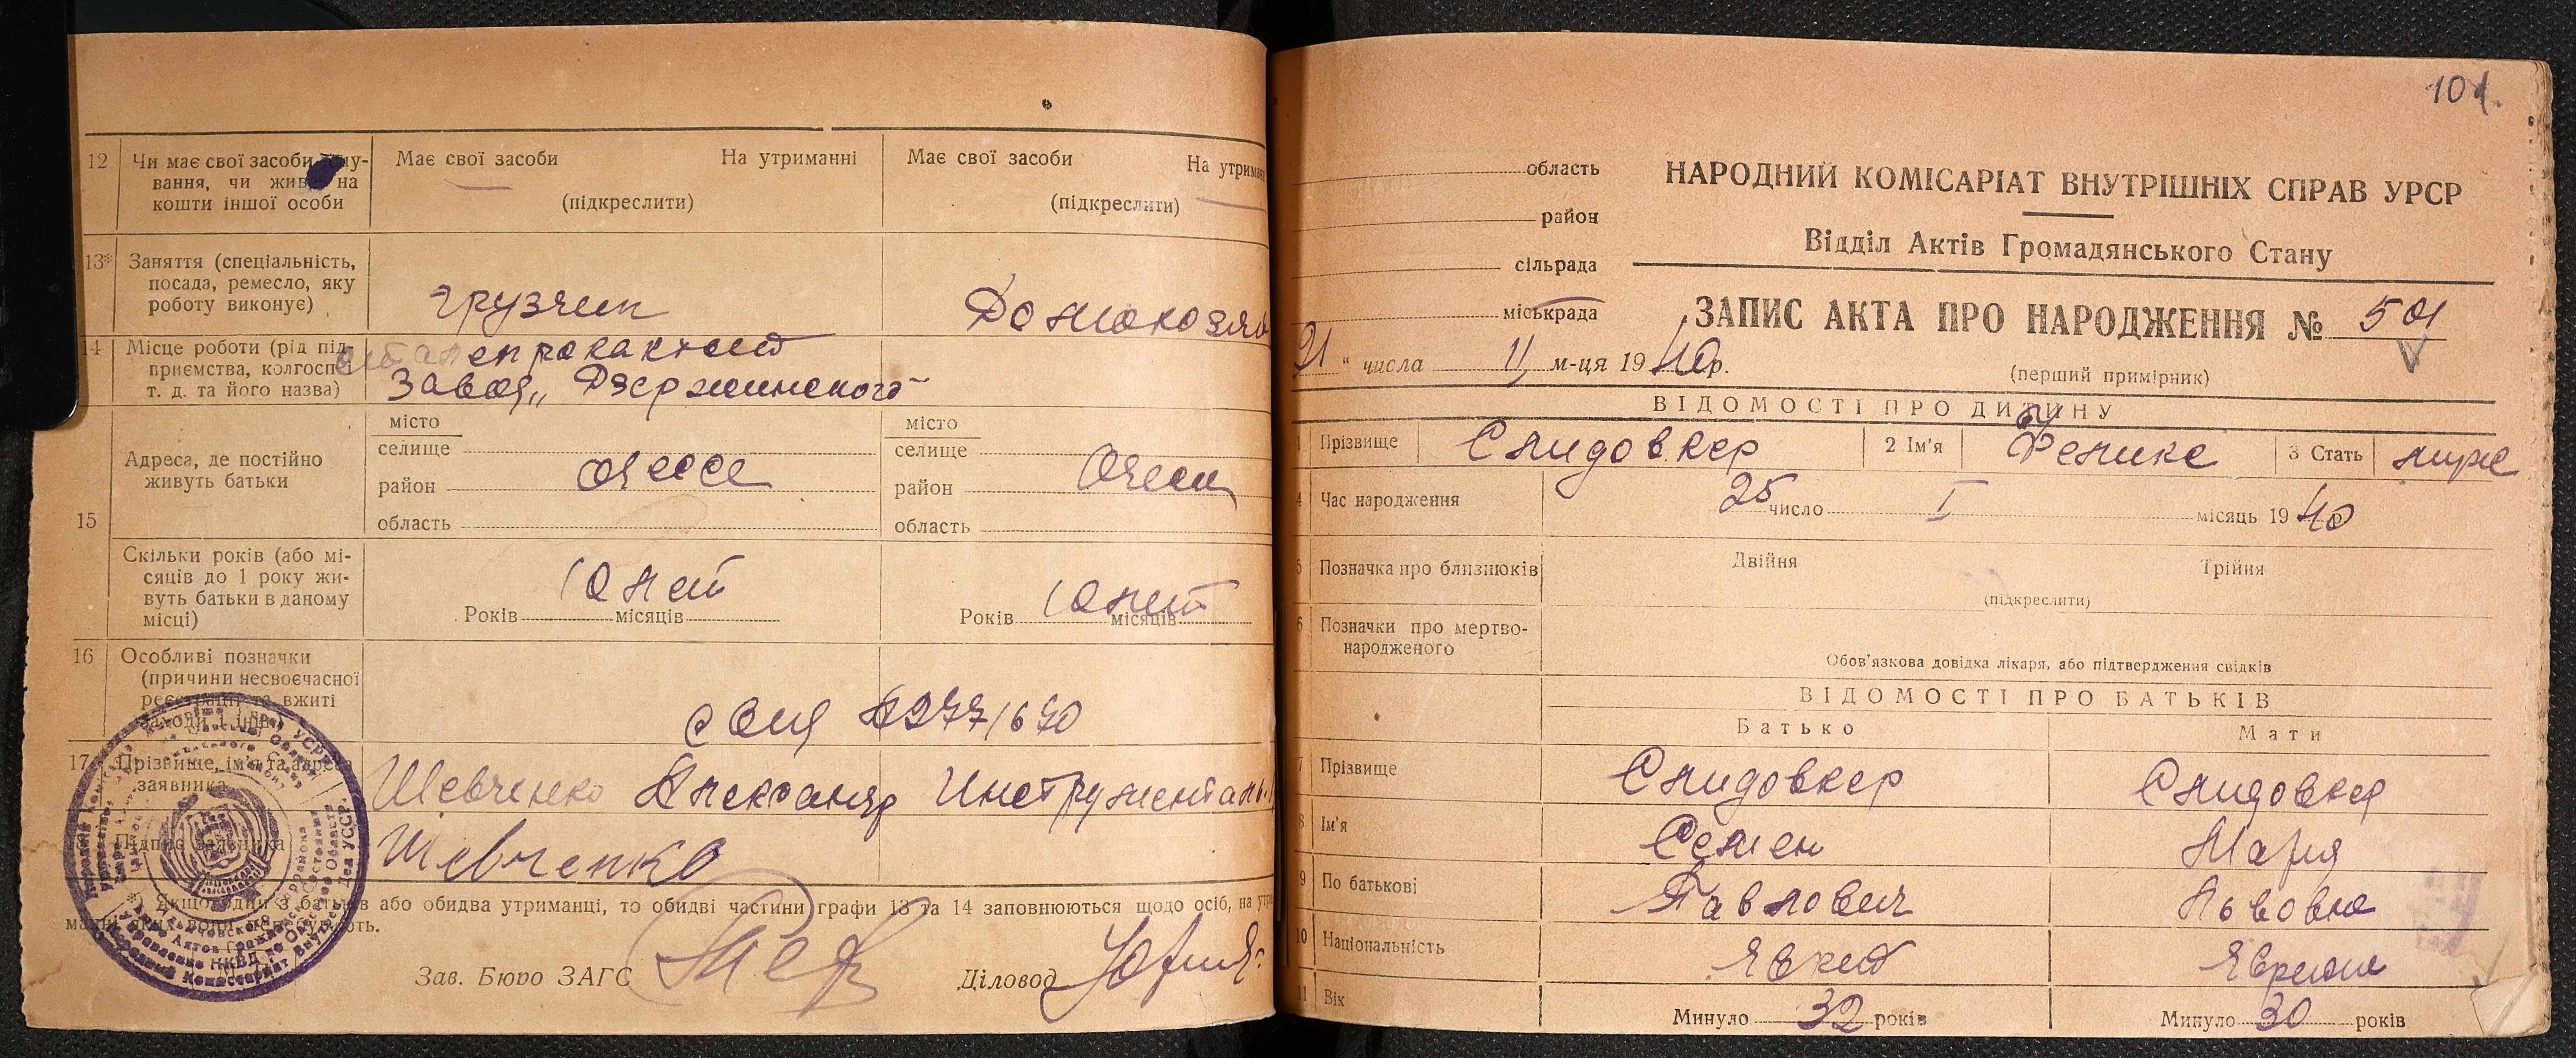 12 Чи має свої засоби
вання, чи живе на
кошти іншої особи
Має свої засоби На утриманні
(підкреслити)
Має свої засоби На утриман
(підкреслити)
13* Заняття (спеціальність,
посада, ремесло, яку
роботу виконує)
грузчик
Домохозяй
14 Місце роботи (рід під-
приємства, колгосп
т. д. та його назва)
Завод „Дзержинского"
15 Адреса, де постійно
живуть батьки
місто
селище
район
область
Одесса
місто
селище
район
область
Одесса
Скільки років (або мі-
сяців до 1 року жи-
вуть батьки в даному
місці)
10 лет
Років місяців
10 лет
Років місяців
16 Особливі позначки
(причини несвоєчасної
реєстрації та вжиті
заходи і інш.)
17 Прізвище, ім'я та адреса
заявника
Шевченко Александр Инструменталь
Підпис заявника
Шевченко
*) Якщо один з батьків або обидва утриманці, то обидві частини графи 13 та 14 заповнюються щодо осіб, на утри
Зав. Бюро ЗАГС
Діловод
101.
область
район
сільрада
міськрада
НАРОДНИЙ КОМІСАРІАТ ВНУТРІШНІХ СПРАВ УРСР
Відділ Актів Громадянського Стану
ЗАПИС АКТА ПРО НАРОДЖЕННЯ № 501
21 " числа II м-ця 1940р.
(перший примірник)
ВІДОМОСТІ ПРО ДИТИНУ
1 Прізвище Слидовкер 2 Ім'я Феликс 3 Стать муж
4 Час народження 25 число I місяць 1940р
5 Позначка про близнюків Двійня Трійня
(підкреслити)
6 Позначки про мертво-
народженого
Обов'язкова довідка лікаря, або підтвердження свідків
ВІДОМОСТІ ПРО БАТЬКІВ
Батько Мати
7 Прізвище Слидовкер Слидовкер
8 Ім'я Семен Мария
9 По батькові Павлович Львовна
10 Національність Еврей Еврейка
11 Вік Минуло 32 років Минуло 30 років